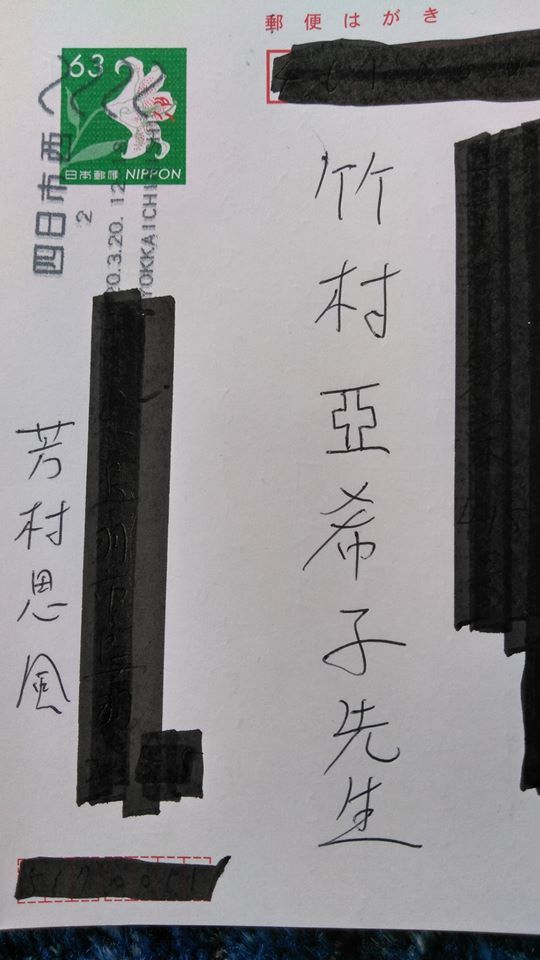 郵便はがき
63
日本郵便 NIPPON
四日市西
2
20.3.20. 12
YOKKAICHI
竹村亞希子先生
芳村思風